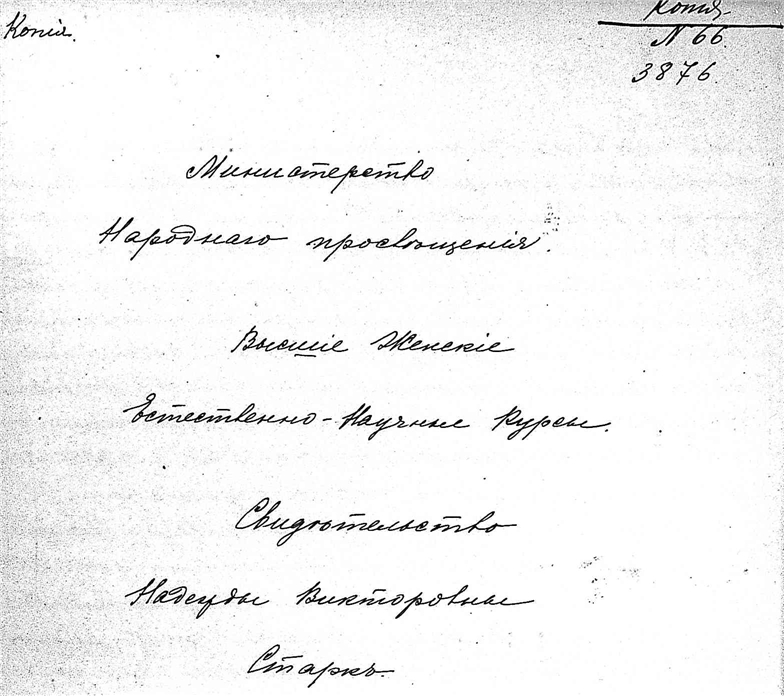 Копія.
Копія
N 66.
3876.
Министерство
Народнаго просвѣщенія.
Высшіе Женскіе
Естественно-Научные Курсы.
Свидѣтельство
Надежды Викторовны
Старкъ.